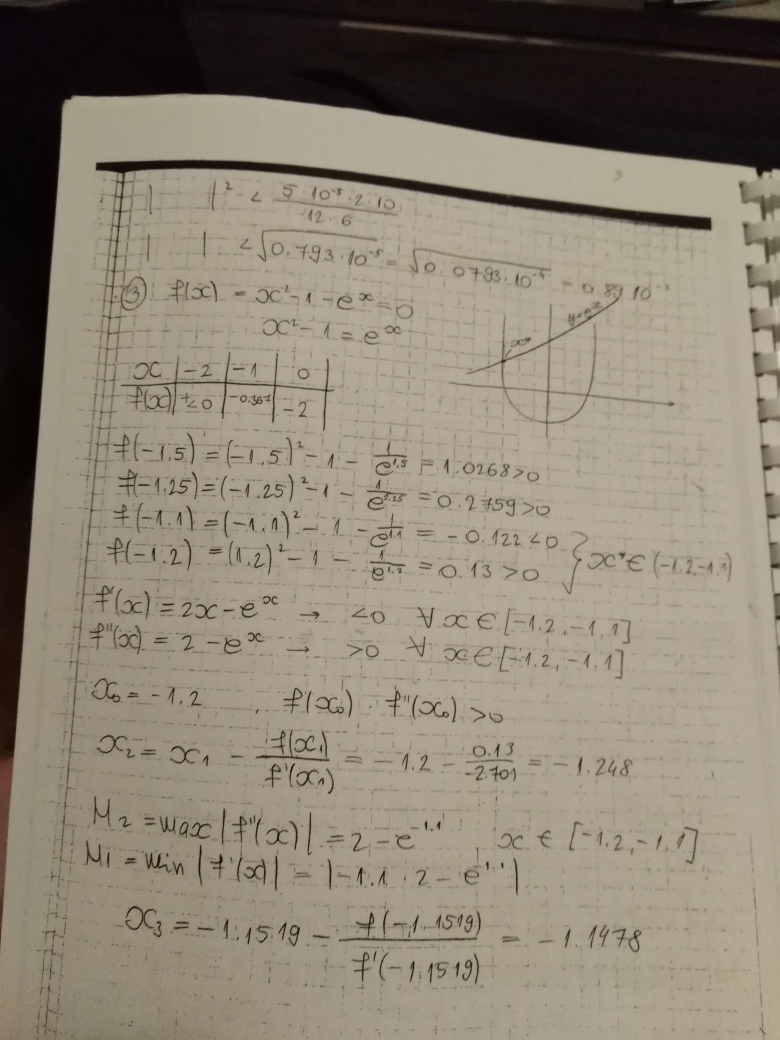 3
| |² < 5·10⁻⁵·2·10 / 12·6
| | < √0.793·10⁻⁵ = √0.0793·10⁻⁴ = 0.89 10⁻²
③ f(x) = x²-1-eˣ=0
x²-1 = eˣ
y=eˣ
x*
x | -2 | -1 | 0
f(x) | <0 | -0.367 | -2
f(-1.5) = (-1.5)²-1- 1/e^1.5 = 1.0268>0
f(-1.25) = (-1.25)²-1- 1/e^1.25 = 0.2759>0
f(-1.1) = (-1.1)²-1- 1/e^1.1 = -0.122<0
f(-1.2) = (1.2)²-1- 1/e^1.2 = 0.13>0 } x*∈(-1.2,-1.1)
f'(x) = 2x-eˣ → <0 ∀ x∈[-1.2,-1.1]
f''(x) = 2-eˣ → >0 ∀ x∈[-1.2,-1.1]
x₀ = -1.2 , f(x₀)·f''(x₀)>0
x₂ = x₁ - f(x₁)/f'(x₁) = -1.2 - 0.13/-2.701 = -1.248
M₂ = max|f''(x)| = 2-e^-1.1 , x∈[-1.2,-1.1]
M₁ = min|f'(x)| = |-1.1·2-e^1.1|
x₃ = -1.1519 - f(-1.1519)/f'(-1.1519) = -1.1478